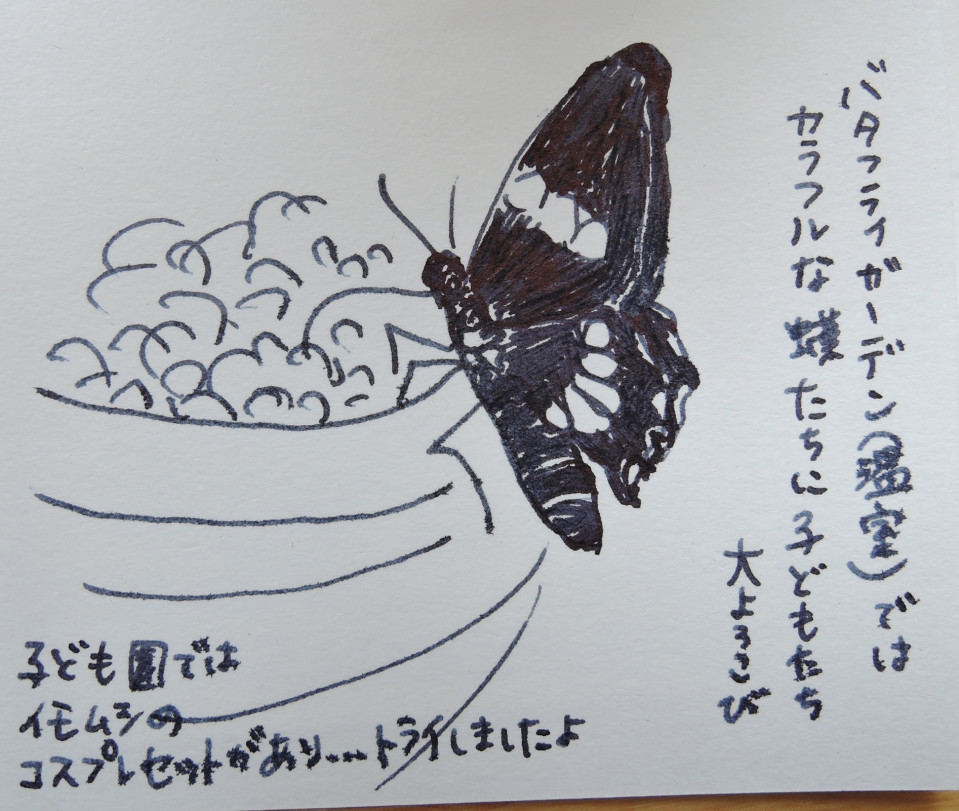 バタフライガーデン(温室)では
カラフルな蝶たちに子どもたち
大よろこび
子ども園では
イモムシの
コスプレセットがあり...トライしましたよ